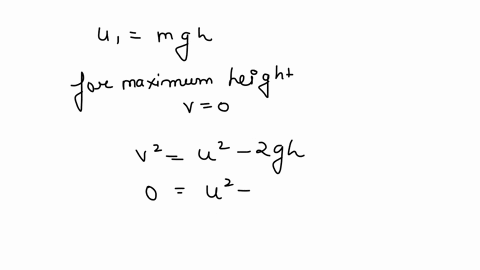 u₁ = mgh
for maximum height
v = 0
v² = u² - 2gh
0 = u² -